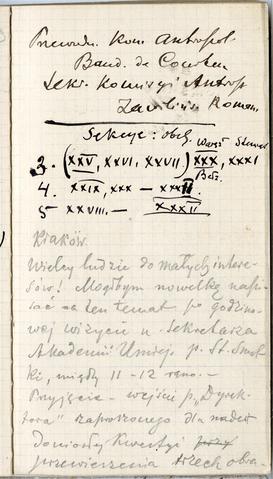 Przewodn. Kom. Antropol.
Baud. de Courten.
Sekr. Komisyi Antrop
Roman.
Sekcye: obch.
3. (XXV, XXVI, XXVII) XXX, XXXI
4. XXIX, XXX — XXXII.
5 XXVIII. — XXXII
Kraków.
Wielcy ludzie do małych intere-
sów! Mógłbym nowelkę napi-
sać na ten temat po godzino-
wej wizycie u Sekretarza
Akademii Umiej. p. St. Smol-
ki, między 11 - 12 rano. —
Przyjęcie — wejście p. „Dyrek-
tora" zaproszonego dla nader
doniosłej kwestyi
przewieszenia trzech obra-